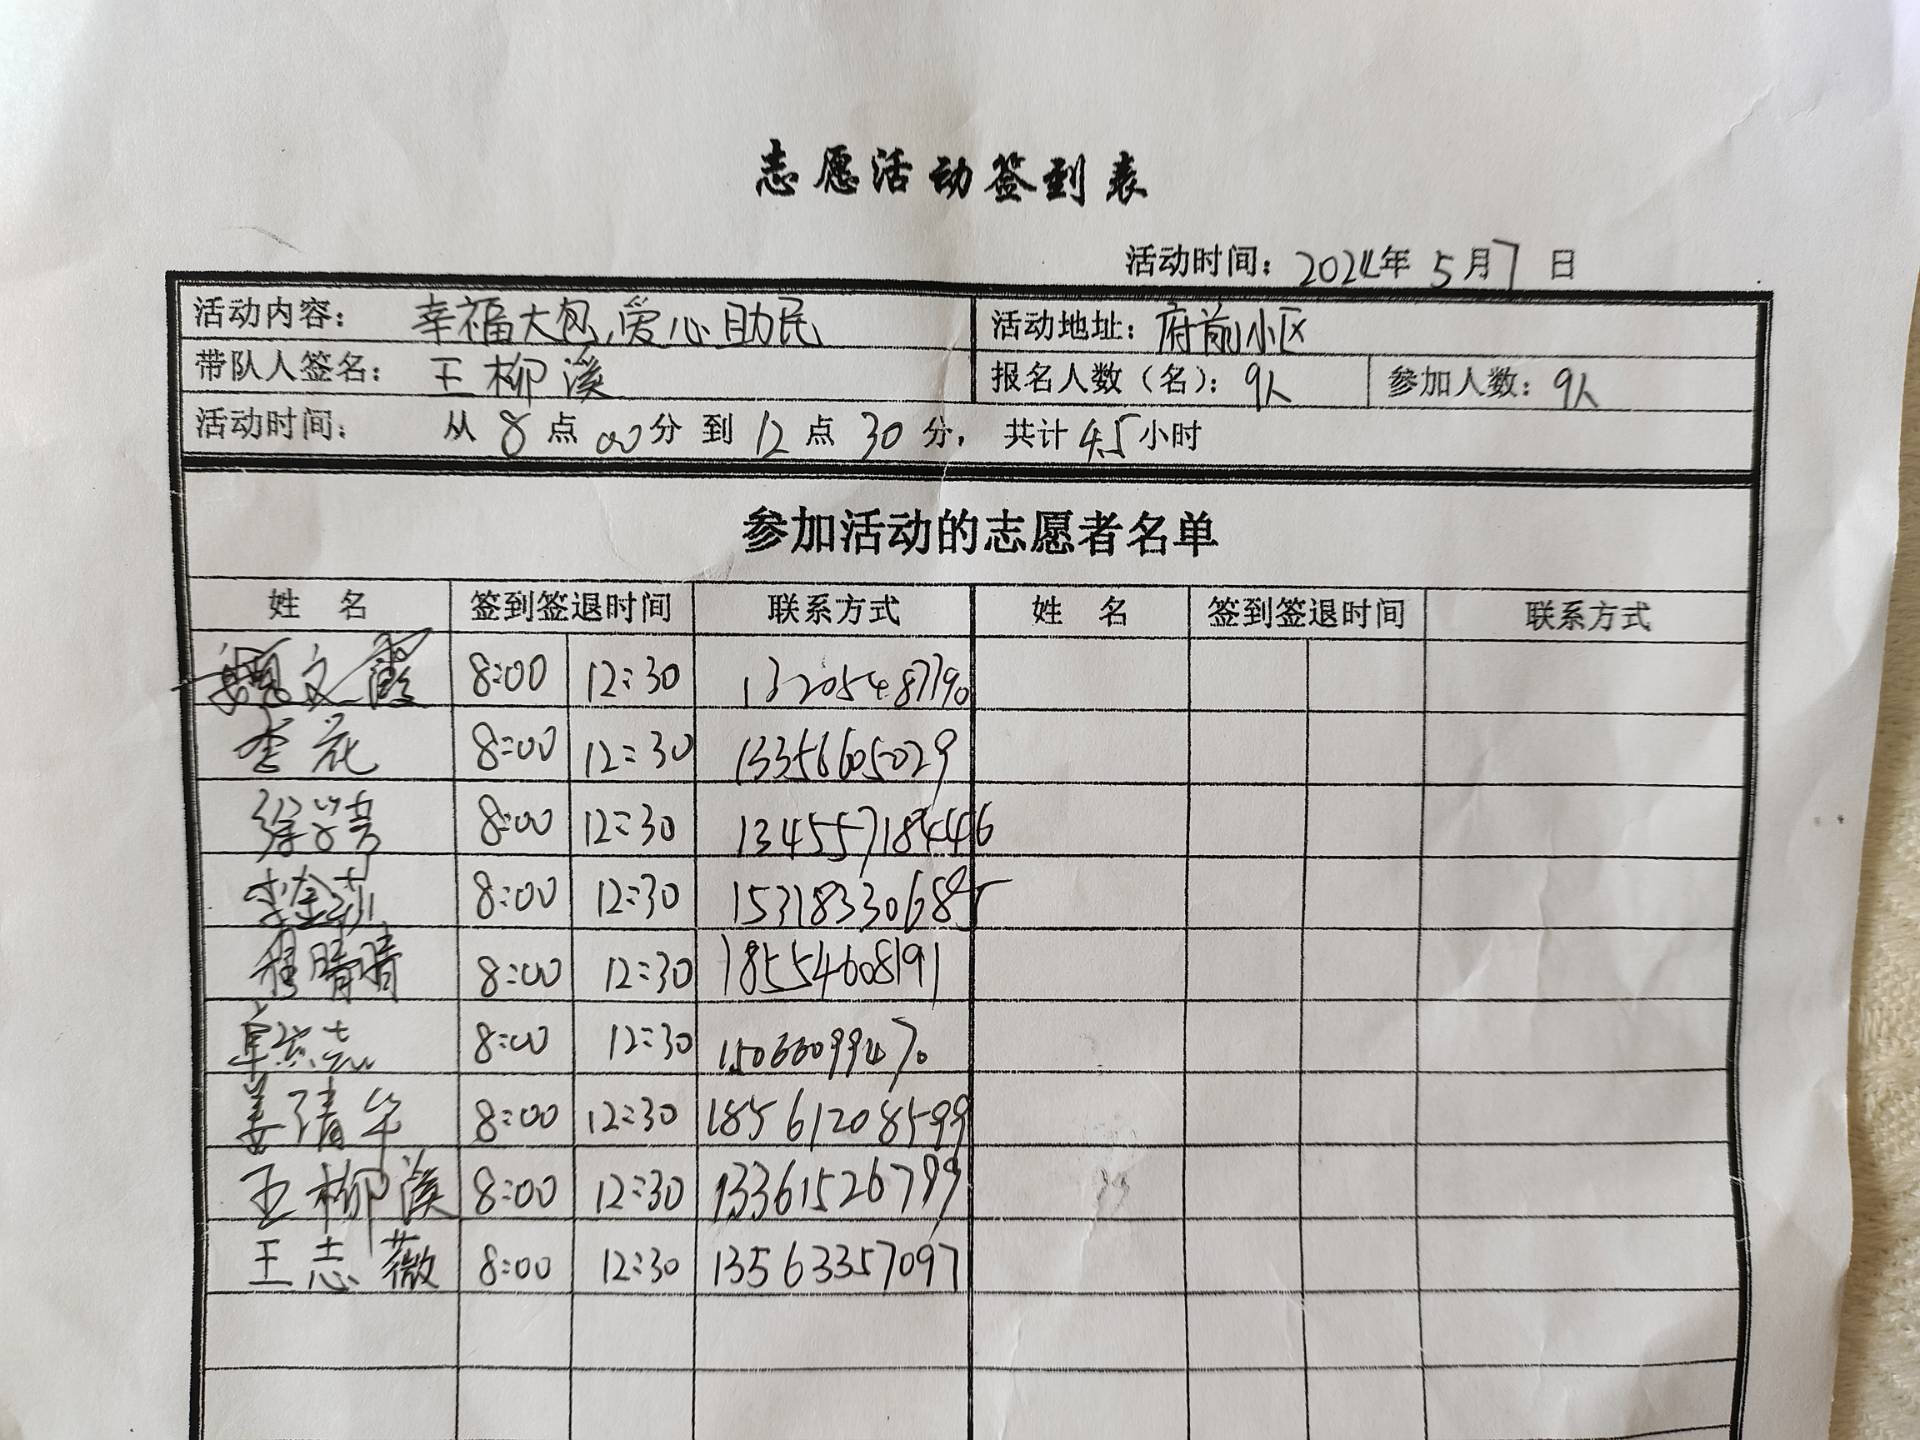 志愿活动签到表
活动时间：2024年5月7日
活动内容：幸福大包,爱心助民 活动地址：府前小区
带队人签名：王柳溪 报名人数（名）：9人 参加人数：9人
活动时间： 从8点00分到12点30分， 共计4.5小时
参加活动的志愿者名单
姓 名 签到签退时间 联系方式 姓 名 签到签退时间 联系方式
魏文霞 8:00 12:30 13205487790
李花 8:00 12:30 13356605029
徐 8:00 12:30 134557184446
李金莎 8:00 12:30 15318330685
程晴晴 8:00 12:30 18554608191
8:00 12:30 15066099470
姜清华 8:00 12:30 18561208599
王柳溪 8:00 12:30 13361526799
王志薇 8:00 12:30 13563357097